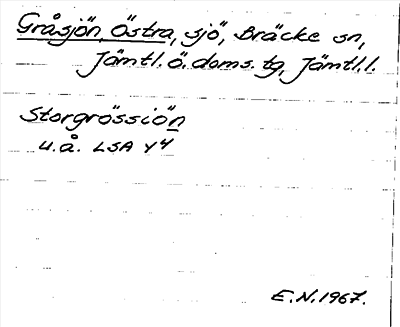 Gråsjön, Östra, sjö, Bräcke sn,
Jämtl. ö. doms. tg, Jämtl. l.
Storgrössiön
u.å. LSA Y4
E.N. 1967.